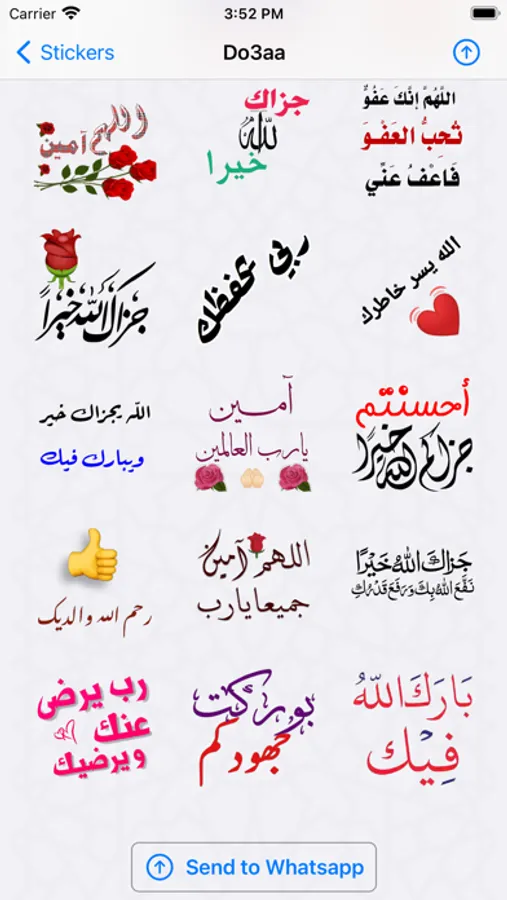 Carrier 3:52 PM
Stickers Do3aa
اللهم آمين
جزاك
الله
خيرا
اللّهُمْ إِنَّكَ عَفُوٌّ
تُحِبُّ العَفْوَ
فَاعْفُ عَنِّي
جزاك الله خيراً
ربي يحفظك
الله يسر خاطرك
اللّه يجزاك خير
ويبارك فيك
آمين
يارب العالمين
أحسنتم
جزاكم الله خيرًا
رحم الله والديك
اللهم آمين
جميعا يارب
جَزَاكَ اللهُ خَيْرًا
نَفَعَ اللهُ بِكَ وَرَفَعَ قَدْرَكَ
رب يرضى
عنك
ويرضيك
بوركت
جهودكم
بَارَكَ اللّهُ
فِيْك
Send to Whatsapp